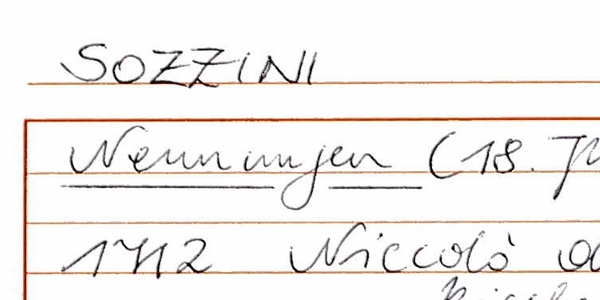 SOZZINI
Nennungen (18. Jh
1712 Niccolò